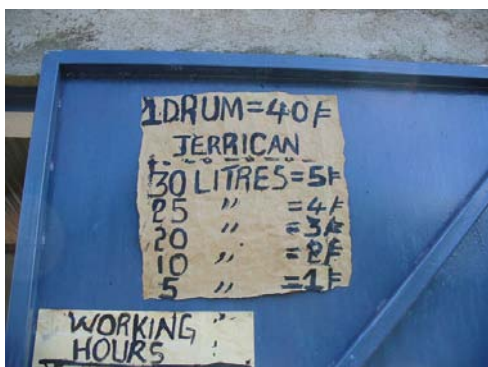 1 DRUM = 40F
JERRICAN
30 LITRES = 5F
25 " = 4F
20 " = 3F
10 " = 2F
5 " = 1F
WORKING
HOURS